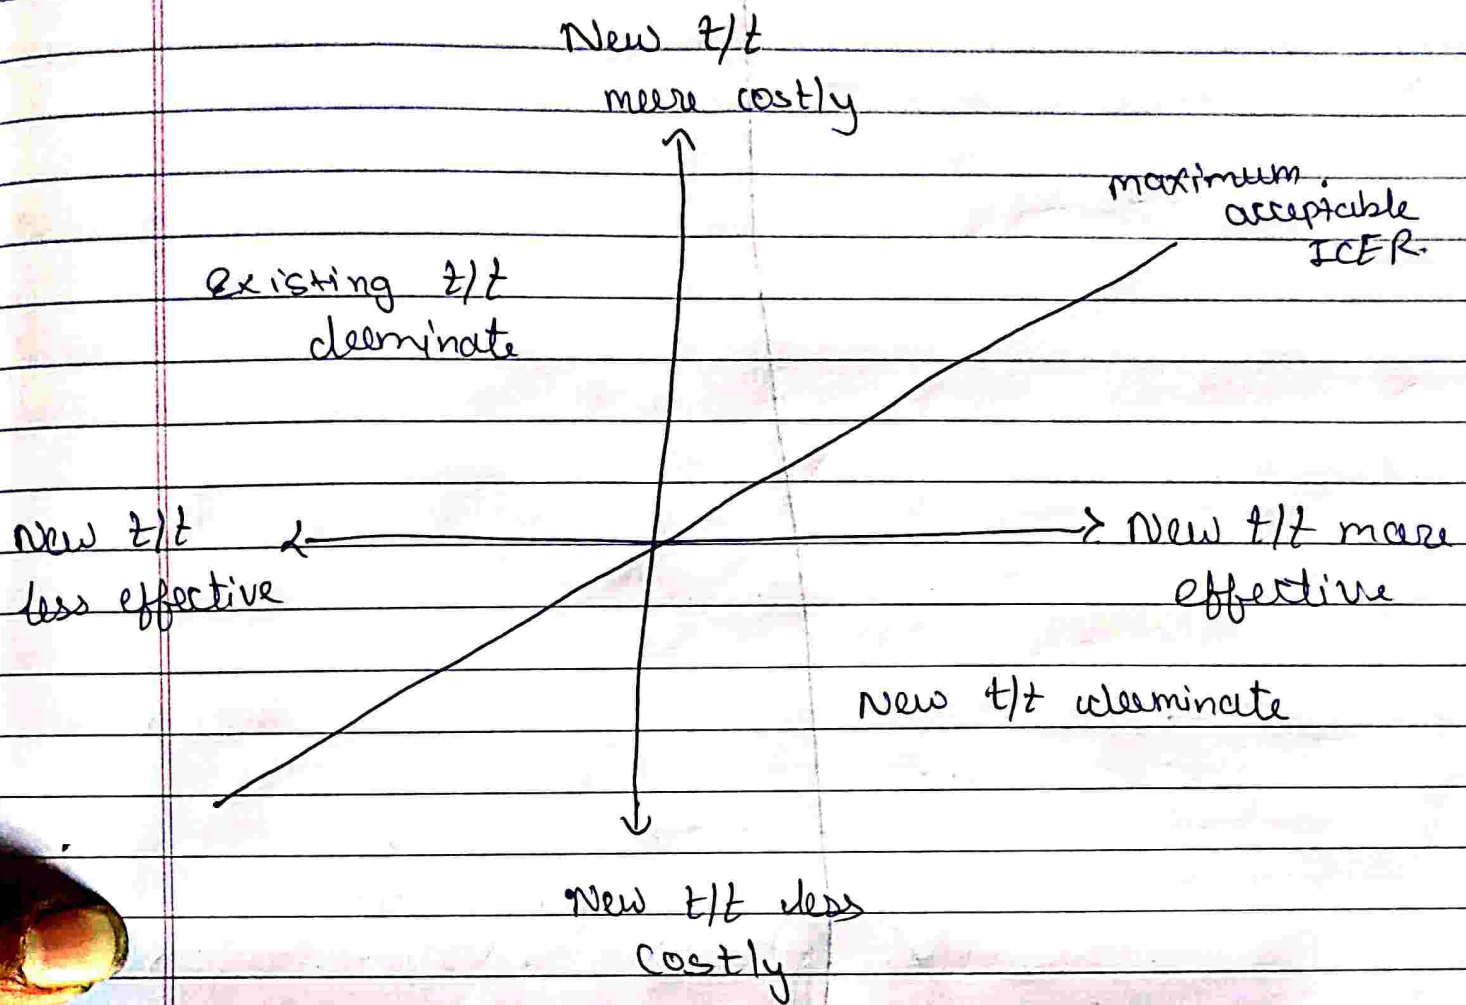 New t/t
more costly
maximum
acceptable
ICER.
existing t/t
dominate
New t/t
less effective
New t/t more
effective
New t/t dominate
New t/t less
costly